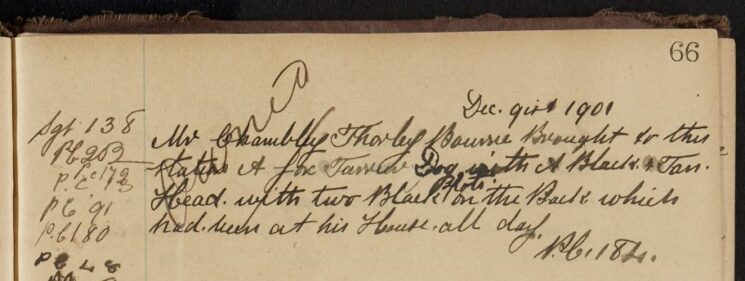 66
Dec. 9th 1901
Sgt. 138
P.C. 202
P.C. 173
P.C. 91
P.C. 180
P.C. 48
Mr Chambley Thorley Bourne Brought to this
Station A fox Terrier Dog with A Black & Tan.
Head. with two Black Spots. on the Back which
had been at his House. all day.
P.C. 184.